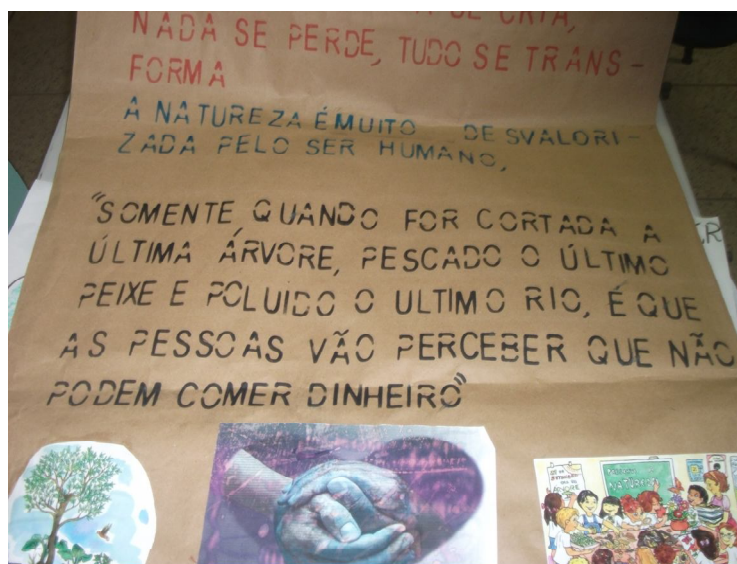 SE CRIA,
NADA SE PERDE, TUDO SE TRANS-
FORMA
A NATUREZA É MUITO DESVALORI-
ZADA PELO SER HUMANO,
"SOMENTE QUANDO FOR CORTADA A
ÚLTIMA ÁRVORE, PESCADO O ÚLTIMO
PEIXE E POLUIDO O ULTIMO RIO, É QUE
AS PESSOAS VÃO PERCEBER QUE NÃO
PODEM COMER DINHEIRO"